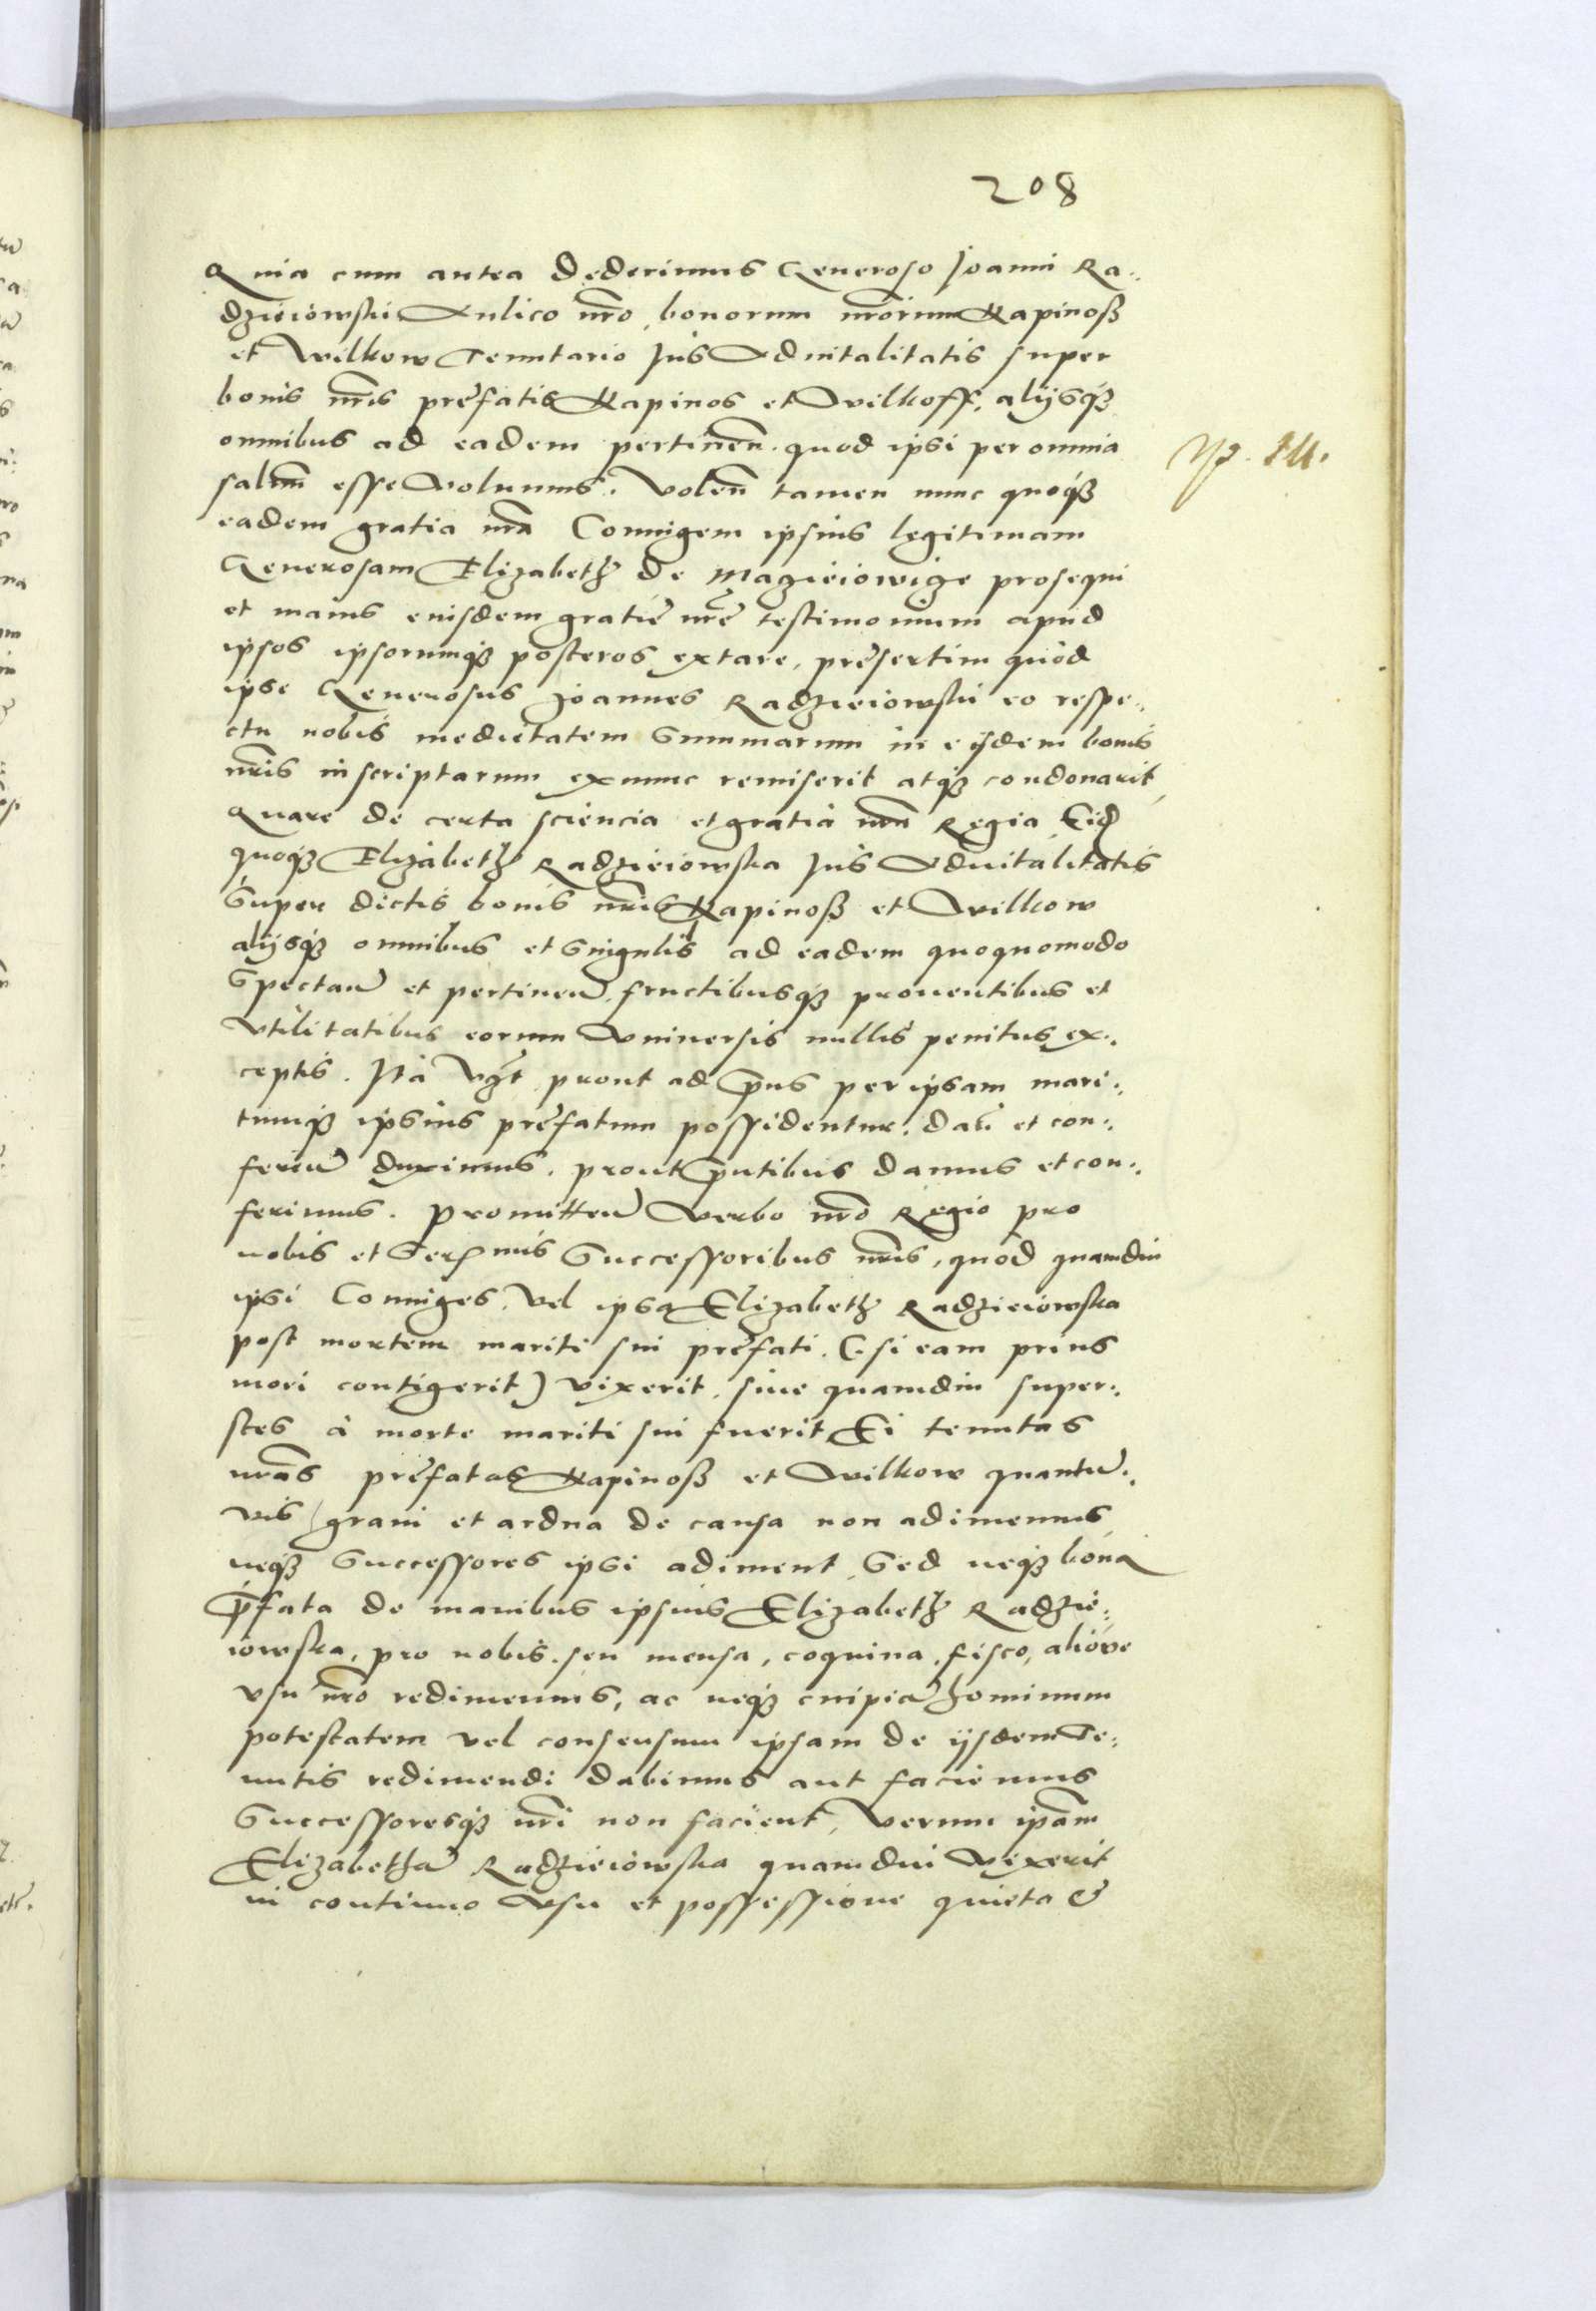 208
Quia cum antea dederimus Generoso Joanni Ra-
dzieiowski Aulico nro, bonorum nrorum Kapinoss
et Wilkow Tenutario Jus Aduitalitatis super
bonis nris prefatis Kapinos et Wilkoff, alijsq3
omnibus ad eadem pertinen. quod ipsi per omnia
saluum esse volumus. Volen tamen nunc quoq3
eadem gratia nra Coniugem ipsius legitimam
Generosam Elizabeth de Magieiowige prosequi
et maius eiusdem gratie nre testimonium apud
ipsos ipsorumq3 posteros extare, presertim quod
ipse Generosus Joannes Radzieiowski eo respe-
ctu nobis medietatem summarum in eisdem bonis
nris inscriptarum ex nunc remiserit atq3 condonarit,
Quare de certa sciencia et gratia nra Regia Eid
quoq3 Elizabeth Radzieiowska Jus Aduitalitatis
super dictis bonis nris Kapinoss et Wilkow
alijsq3 omnibus et singulis ad eadem quoquomodo
spectan et pertinen, fructibusq3 prouentibus et
vtilitatibus eorum vniuersis nullis penitus ex-
ceptis. Ita vt prout ad pns per ipsam mari-
tumq3 ipsius prefatum possidentur. dan et con-
feren duximus. prout pntibus damus et con-
ferimus. Promitten verbo nro Regio pro
nobis et Sermis successoribus nris, quod quamdiu
ipsi Coniuges, vel ipsa Elizabeth Radzieiowska
post mortem mariti sui prefati, (si eam prius
mori contigerit) vixerit, siue quamdiu super-
stes à morte mariti sui fuerit Ei tenutas
nras prefatas Kapinoss et Wilkow quantu-
uis graui et ardua de causa non adimemus,
neq3 successores ipsi adiment, sed neq3 bona
prefata de manibus ipsius Elizabeth Radzie-
iowska, pro nobis, seu mensa, coquina, fisco, alioue
vsu nro redimemus, ac neq3 cuipia hominum
potestatem vel consensum ipsam de ijsdem Te-
nutis redimendi dabimus aut faciemus
successoresq3 nri non facient, verum ipam
Elizabetha Radzieiowska quamdiu vixerit
in continuo vsu et possessione quieta &